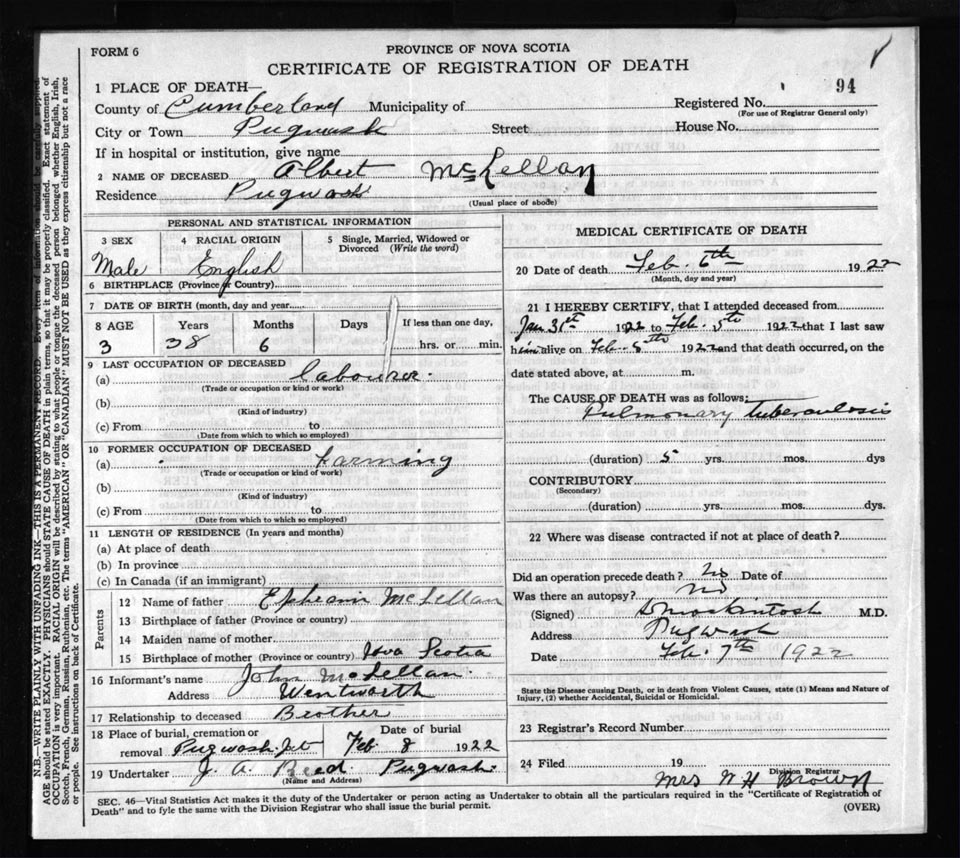 FORM 6
PROVINCE OF NOVA SCOTIA
CERTIFICATE OF REGISTRATION OF DEATH
94
1 PLACE OF DEATH—
County of Cumberland Municipality of
Registered No.
(For use of Registrar General only)
City or Town Pugwash Street House No.
If in hospital or institution, give name
2 NAME OF DECEASED Albert McLellan
Residence Pugwash
(Usual place of abode)
PERSONAL AND STATISTICAL INFORMATION
3 SEX 4 RACIAL ORIGIN 5 Single, Married, Widowed or Divorced (Write the word)
Male English
6 BIRTHPLACE (Province or Country)
7 DATE OF BIRTH (month, day and year)
8 AGE Years Months Days If less than one day,
3 38 6 hrs. or min.
9 LAST OCCUPATION OF DECEASED
(a) labourer.
(Trade or occupation or kind or work)
(b)
(Kind of industry)
(c) From to
(Date from which to which so employed)
10 FORMER OCCUPATION OF DECEASED
(a) Farming
(Trade or occupation or kind of work)
(b)
(Kind of industry)
(c) From to
(Date from which to which so employed)
11 LENGTH OF RESIDENCE (In years and months)
(a) At place of death
(b) In province
(c) In Canada (if an immigrant)
Parents
12 Name of father Ephraim McLellan
13 Birthplace of father (Province or country)
14 Maiden name of mother
15 Birthplace of mother (Province or country) Nova Scotia
16 Informant's name John McLellan
Address Wentworth
17 Relationship to deceased Brother
18 Place of burial, cremation or Date of burial
removal Pugwash Jct Feb 8 1922
19 Undertaker J. A. Reed. Pugwash
(Name and Address)
MEDICAL CERTIFICATE OF DEATH
20 Date of death Feb. 6th 1922
(Month, day and year)
21 I HEREBY CERTIFY, that I attended deceased from
Jan 31st 1922 to Feb. 5th 1922 that I last saw
him alive on Feb. 5th 1922 and that death occurred, on the
date stated above, at m.
The CAUSE OF DEATH was as follows:
Pulmonary tuberculosis
(duration) 5 yrs. mos. dys
CONTRIBUTORY
(Secondary)
(duration) yrs. mos. dys.
22 Where was disease contracted if not at place of death?
Did an operation precede death? No Date of
Was there an autopsy? No
(Signed) Mackintosh M.D.
Address Pugwash
Date Feb. 7th 1922
State the Disease causing Death, or in death from Violent Causes, state (1) Means and Nature of
Injury, (2) whether Accidental, Suicidal or Homicidal.
23 Registrar's Record Number
24 Filed 19
Division Registrar
Mrs W H Brown
SEC. 46—Vital Statistics Act makes it the duty of the Undertaker or person acting as Undertaker to obtain all the particulars required in the "Certificate of Registration of
Death" and to fyle the same with the Division Registrar who shall issue the burial permit.
(OVER)
N.B.—WRITE PLAINLY WITH UNFADING INK—THIS IS A PERMANENT RECORD. Every item of information should be carefully supplied.
AGE should be stated EXACTLY. PHYSICIANS should STATE CAUSE OF DEATH in plain terms, so that it may be properly classified. Exact statement of
OCCUPATION is very important. RACIAL ORIGIN will be described by stating to what people or tongue the deceased person belonged whether English, Irish,
Scotch, French, German, Russian, Ruthenian, etc. The terms "AMERICAN" OR "CANADIAN" MUST NOT BE USED as they express citizenship but not a race
or people. See instructions on back of Certificate.